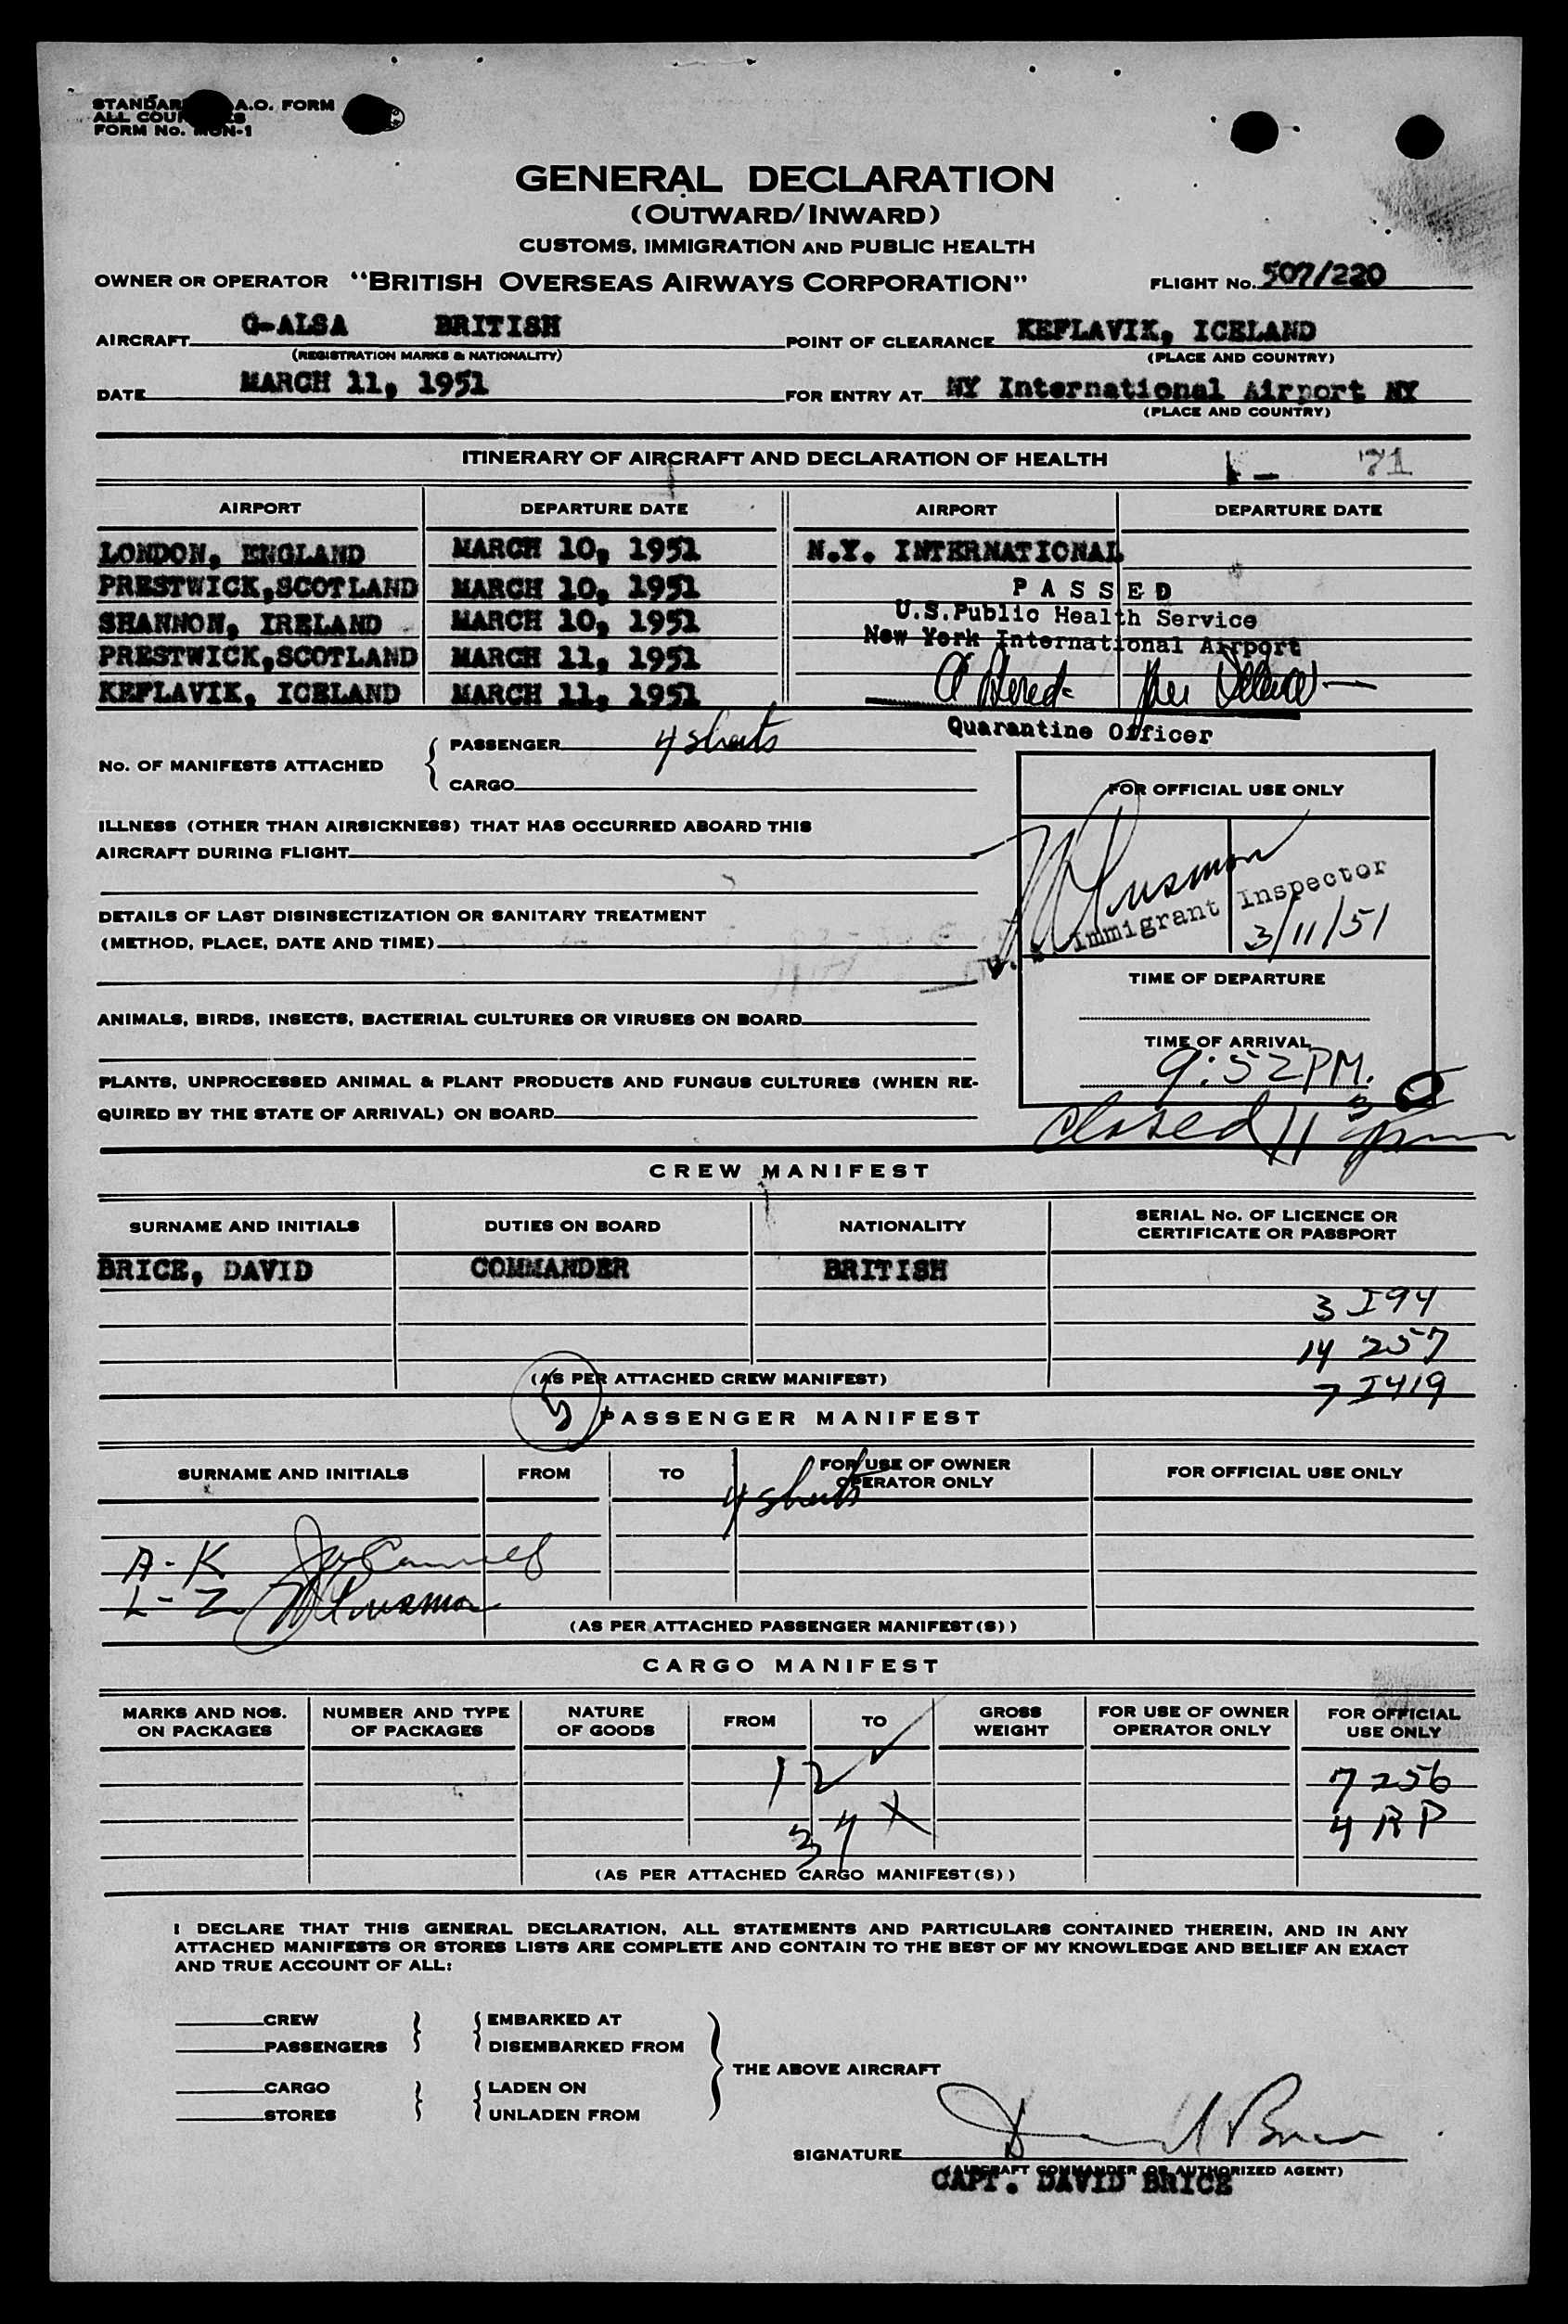 STANDARD A.O. FORM
ALL COUNTRIES
FORM No. MON-1
GENERAL DECLARATION
(OUTWARD/INWARD)
CUSTOMS, IMMIGRATION AND PUBLIC HEALTH
OWNER OR OPERATOR "BRITISH OVERSEAS AIRWAYS CORPORATION" FLIGHT No. 507/220
AIRCRAFT G-ALSA BRITISH POINT OF CLEARANCE KEFLAVIK, ICELAND
(REGISTRATION MARKS & NATIONALITY) (PLACE AND COUNTRY)
DATE MARCH 11, 1951 FOR ENTRY AT NY International Airport NY
(PLACE AND COUNTRY)
ITINERARY OF AIRCRAFT AND DECLARATION OF HEALTH 71
AIRPORT DEPARTURE DATE AIRPORT DEPARTURE DATE
LONDON, ENGLAND MARCH 10, 1951 N.Y. INTERNATIONAL
PRESTWICK, SCOTLAND MARCH 10, 1951 PASSED
SHANNON, IRELAND MARCH 10, 1951 U.S. Public Health Service
PRESTWICK, SCOTLAND MARCH 11, 1951 New York International Airport
KEFLAVIK, ICELAND MARCH 11, 1951
Quarantine Officer
No. OF MANIFESTS ATTACHED { PASSENGER 4 sheets
CARGO
FOR OFFICIAL USE ONLY
ILLNESS (OTHER THAN AIRSICKNESS) THAT HAS OCCURRED ABOARD THIS
AIRCRAFT DURING FLIGHT
DETAILS OF LAST DISINSECTIZATION OR SANITARY TREATMENT
(METHOD, PLACE, DATE AND TIME)
Immigrant Inspector
3/11/51
TIME OF DEPARTURE
ANIMALS, BIRDS, INSECTS, BACTERIAL CULTURES OR VIRUSES ON BOARD
TIME OF ARRIVAL
9:52 PM.
PLANTS, UNPROCESSED ANIMAL & PLANT PRODUCTS AND FUNGUS CULTURES (WHEN RE-
QUIRED BY THE STATE OF ARRIVAL) ON BOARD
closed 11
CREW MANIFEST
SURNAME AND INITIALS DUTIES ON BOARD NATIONALITY SERIAL No. OF LICENCE OR CERTIFICATE OR PASSPORT
BRICE, DAVID COMMANDER BRITISH
3 I94
14 257
(AS PER ATTACHED CREW MANIFEST) 7 I419
PASSENGER MANIFEST
SURNAME AND INITIALS FROM TO FOR USE OF OWNER OPERATOR ONLY FOR OFFICIAL USE ONLY
4 sheets
A-K
L-Z
(AS PER ATTACHED PASSENGER MANIFEST(S))
CARGO MANIFEST
MARKS AND NOS. ON PACKAGES NUMBER AND TYPE OF PACKAGES NATURE OF GOODS FROM TO GROSS WEIGHT FOR USE OF OWNER OPERATOR ONLY FOR OFFICIAL USE ONLY
1 2 ✓ 7 256
3 4 X 4 RP
(AS PER ATTACHED CARGO MANIFEST(S))
I DECLARE THAT THIS GENERAL DECLARATION, ALL STATEMENTS AND PARTICULARS CONTAINED THEREIN, AND IN ANY
ATTACHED MANIFESTS OR STORES LISTS ARE COMPLETE AND CONTAIN TO THE BEST OF MY KNOWLEDGE AND BELIEF AN EXACT
AND TRUE ACCOUNT OF ALL:
CREW } { EMBARKED AT
PASSENGERS } { DISEMBARKED FROM
THE ABOVE AIRCRAFT
CARGO } { LADEN ON
STORES } { UNLADEN FROM
SIGNATURE David Brice
(AIRCRAFT COMMANDER OR AUTHORIZED AGENT)
CAPT. DAVID BRICE